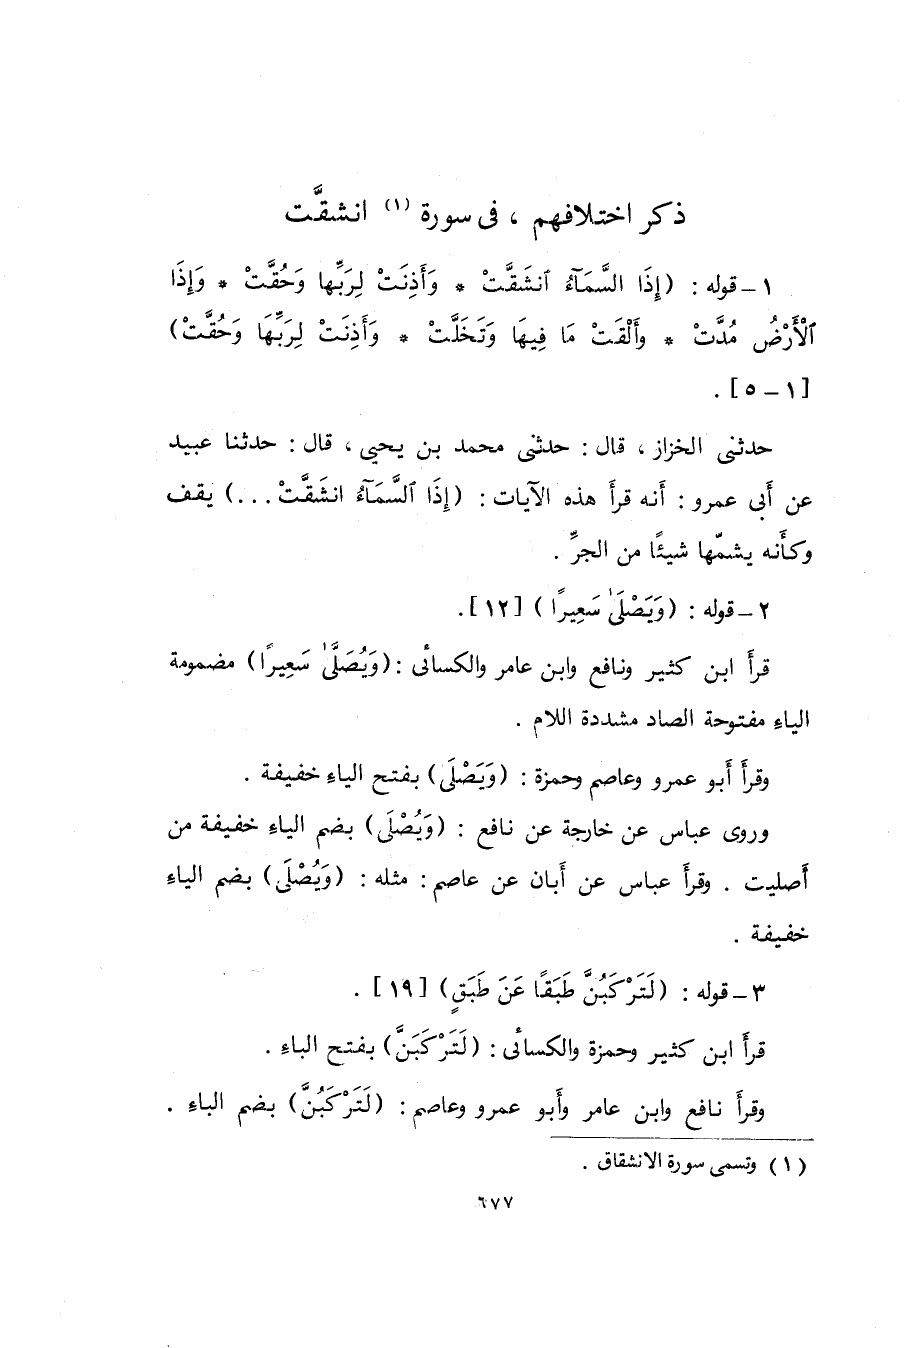 ذكر اختلافهم ، فى سورة (١) انشقَّت
١ – قوله : (إِذَا السَّمَآءُ ٱنشَقَّتْ * وَأَذِنَتْ لِرَبِّها وَحُقَّتْ * وَإِذَا
ٱلْأَرْضُ مُدَّتْ * وأَلْقَتْ مَا فِيهَا وَتَخَلَّتْ * وَأَذِنَتْ لِرَبِّهَا وَحُقَّتْ)
[١ – ٥] .
حدثنى الخزاز ، قال : حدثنى محمد بن يحيى ، قال : حدثنا عبيد
عن أَبى عمرو : أَنه قرأَ هذه الآيات : (إِذَا ٱلسَّمَآءُ انشَقَّتْ ...) يقف
وكأَنه يشمّها شيئًا من الجرِّ .
٢ – قوله : (وَيَصْلَىٰ سَعِيرًا ) [١٢] .
قرأَ ابن كثير ونافع وابن عامر والكسائى : (وَيُصَلَّىٰ سَعِيرًا) مضمومة
الياءِ مفتوحة الصاد مشددة اللام .
وقرأَ أَبو عمرو وعاصم وحمزة : (وَيَصْلَى) بفتح الياءِ خفيفة .
وروى عباس عن خارجة عن نافع : (وَيُصْلَى) بضم الياءِ خفيفة من
أَصليت . وقرأَ عباس عن أَبان عن عاصم : مثله : (وَيُصْلَى) بضم الياءِ
خفيفة .
٣ – قوله : (لَتَرْكَبُنَّ طَبَقًا عَنَ طَبَقٍ) [١٩] .
قرأَ ابن كثير وحمزة والكسائى : (لَتَرْكَبَنَّ) بفتح الباءِ .
وقرأَ نافع وابن عامر وأَبو عمرو وعاصم : (لَتَرْكَبُنَّ) بضم الباءِ .
(١) وتسمى سورة الانشقاق .
٦٧٧